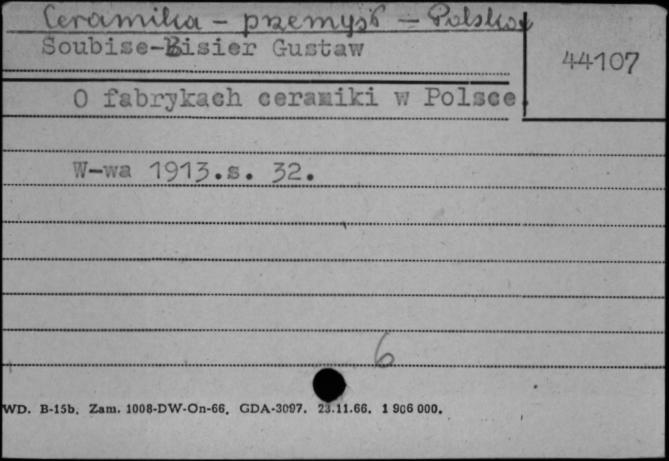 Ceramika - przemysł - Polska
Soubise-Bisier Gustaw
44107
O fabrykach ceramiki w Polsce
W-wa 1913.s. 32.
6
WD. B-15b. Zam. 1008-DW-On-66. GDA-3097. 23.11.66. 1 906 000.